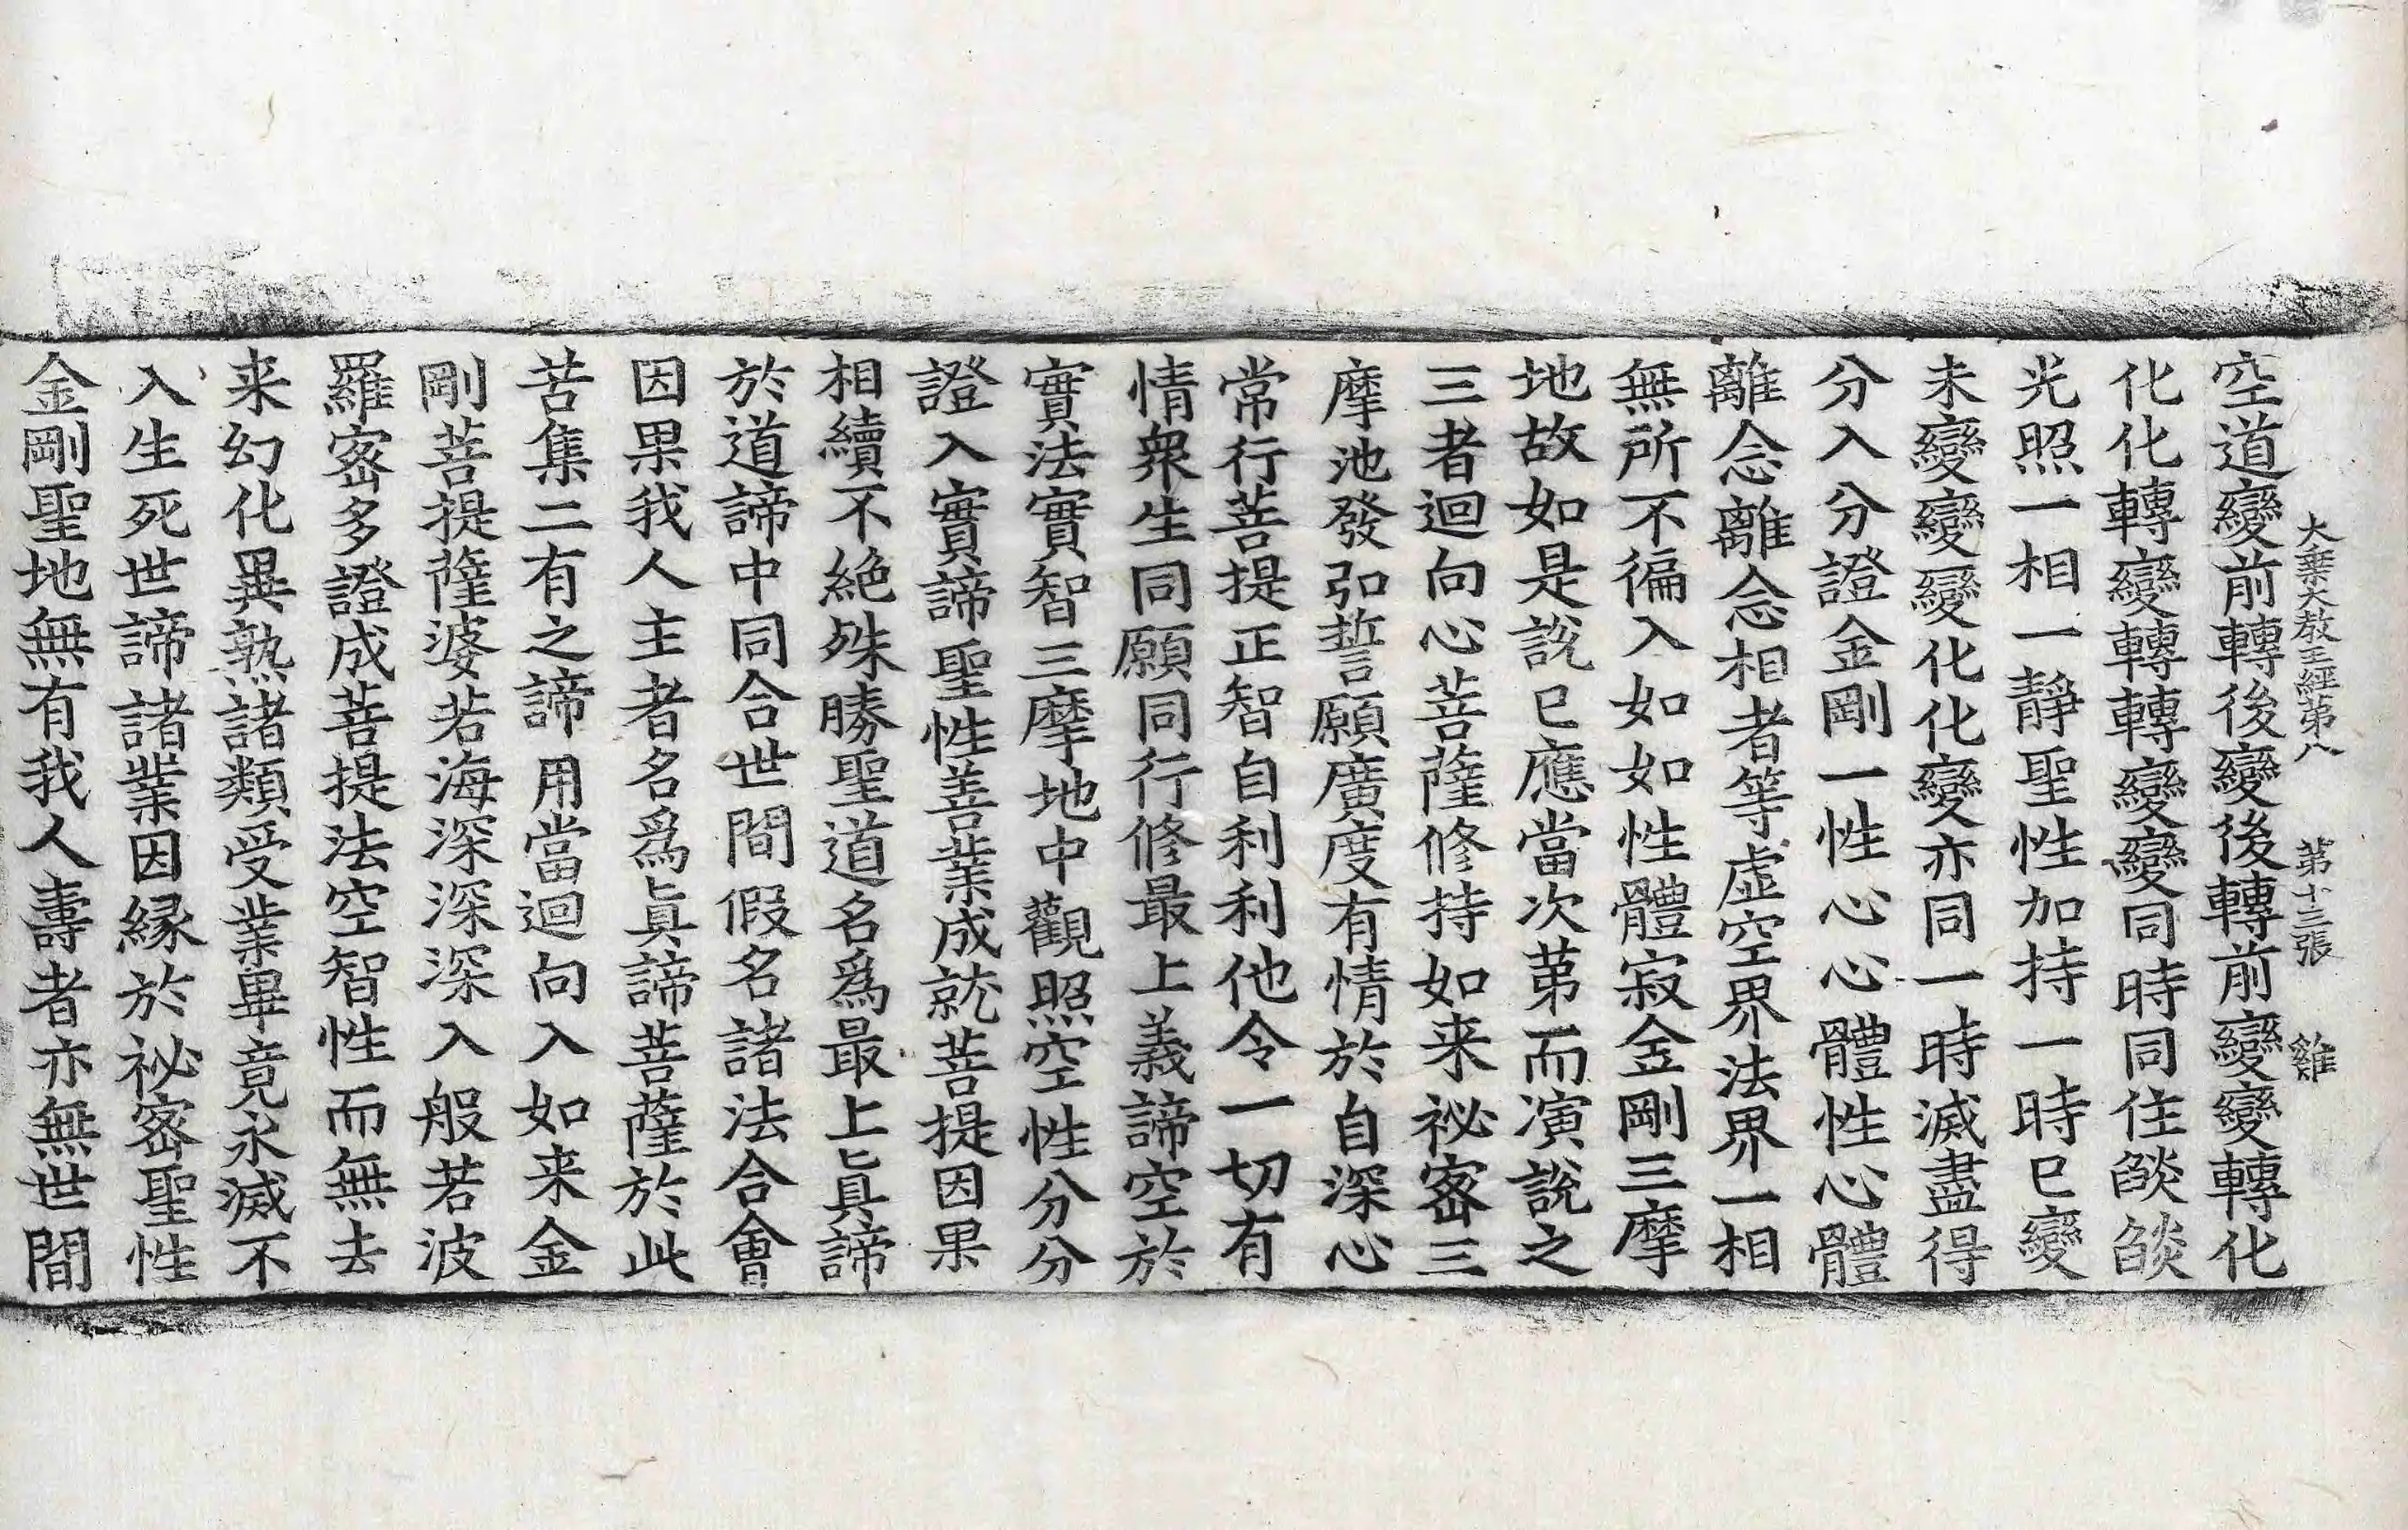 大乗大教王經第八　第十三張　雞
空道變前轉後變後轉前變變轉化
化化轉變轉轉變變同時同住燄燄
光照一相一靜聖性加持一時已變
未變變變化化變亦同一時滅盡得
分入分證金剛一性心心體性心體
離念離念相者等虛空界法界一相
無所不徧入如如性體寂金剛三摩
地故如是說已應當次第而演說之
三者迴向心菩薩修持如来祕宻三
摩地發弘誓願廣度有情於自深心
常行菩提正智自利利他令一切有
情衆生同願同行修最上義諦空於
實法實智三摩地中觀照空性分分
證入實諦聖性善業成就菩提因果
相續不絶殊勝聖道名爲最上眞諦
於道諦中同合世間假名諸法合會
因果我人主者名爲眞諦菩薩於此
苦集二有之諦用當迴向入如来金
剛菩提薩婆若海深深深入般若波
羅宻多證成菩提法空智性而無去
来幻化異熟諸類受業畢竟永滅不
入生死世諦諸業因縁於祕宻聖性
金剛聖地無有我人壽者亦無世間